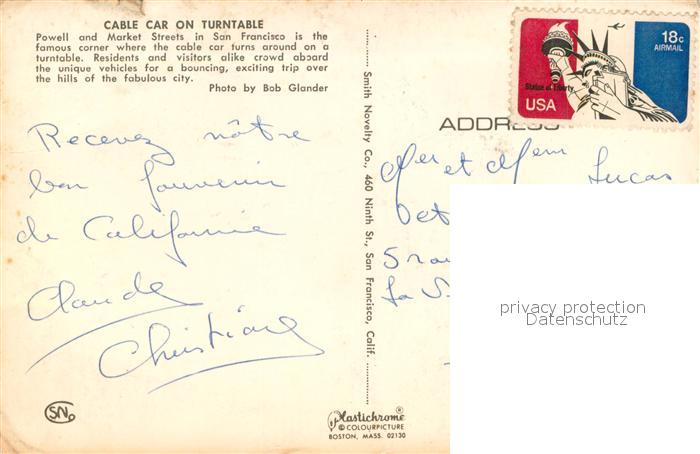 CABLE CAR ON TURNTABLE
Powell and Market Streets in San Francisco is the
famous corner where the cable car turns around on a
turntable. Residents and visitors alike crowd aboard
the unique vehicles for a bouncing, exciting trip over
the hills of the fabulous city.
Photo by Bob Glander
Recevez nôtre
bon souvenir
de Californie
Claude
Christiane
SN
Smith Novelty Co., 460 Ninth St., San Francisco, Calif.
Plastichrome®
© COLOURPICTURE
BOSTON, MASS. 02130
18c
AIRMAIL
Statue of Liberty
USA
ADDRESS
et Lucas
5
La
privacy protection
Datenschutz